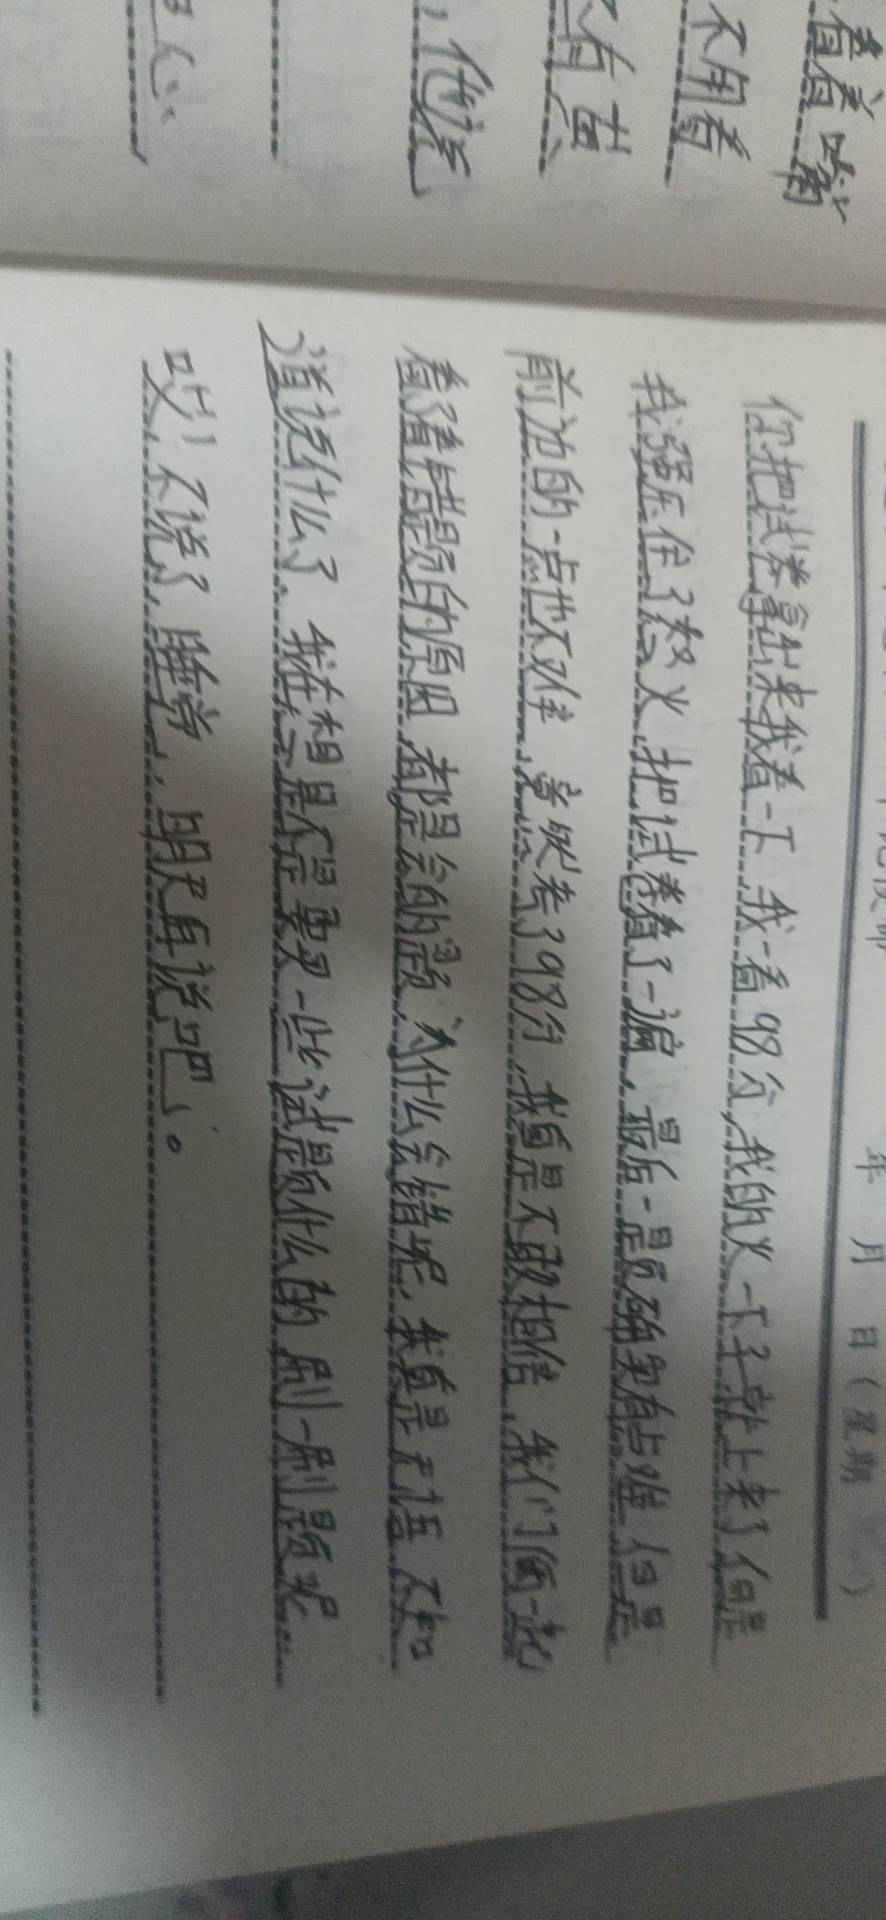 着着嘴
不用看
有苗
，他渣
年 月 日（星期 ）
你把试卷拿出来我看一下，我一看98分，我的火一下子就上来了但是
我强压住了怒火，把试卷看了一遍，最后一题确实有点难 但是
前边的一点也不难，竟然考了98分，我真是不敢相信，我们俩一起
看看错题的原因，都是会的题，为什么会错呢，我真是无语 不知
道说什么了，我在想是不是要买一些试题什么的 刷一刷题呢…
哎！不说了 睡觉，明天再说吧、。